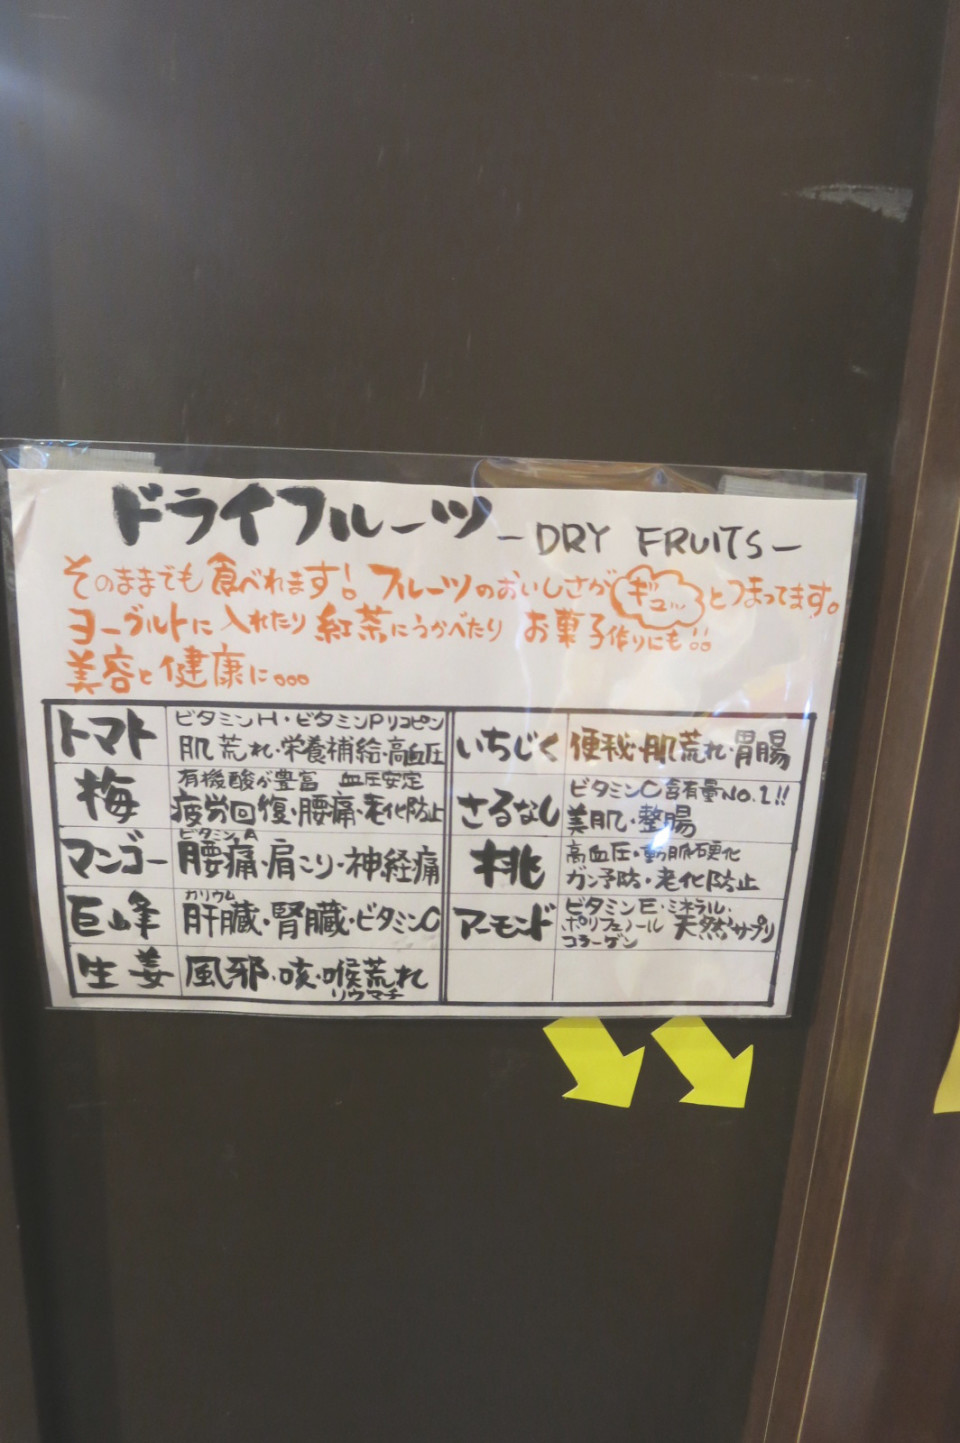 ドライフルーツ -DRY FRUITS-
そのままでも食べれます! フルーツのおいしさがギュッとつまってます。
ヨーグルトに入れたり紅茶にうかべたり お菓子作りにも!!
美容と健康に。。。
トマト
ビタミンH・ビタミンPリコピン
肌荒れ・栄養補給・高血圧
梅
有機酸が豊富 血圧安定
疲労回復・腰痛・老化防止
マンゴー
ビタミンA
腰痛・肩こり・神経痛
巨峰
カリウム
肝臓・腎臓・ビタミンC
生姜
風邪・咳・喉荒れ
リウマチ
いちじく
便秘・肌荒れ・胃腸
さるなし
ビタミンC含有量NO.1!!
美肌・整腸
桃
高血圧・動脈硬化
ガン予防・老化防止
アーモンド
ビタミンE・ミネラル・
ポリフェノール 天然サプリ
コラーゲン